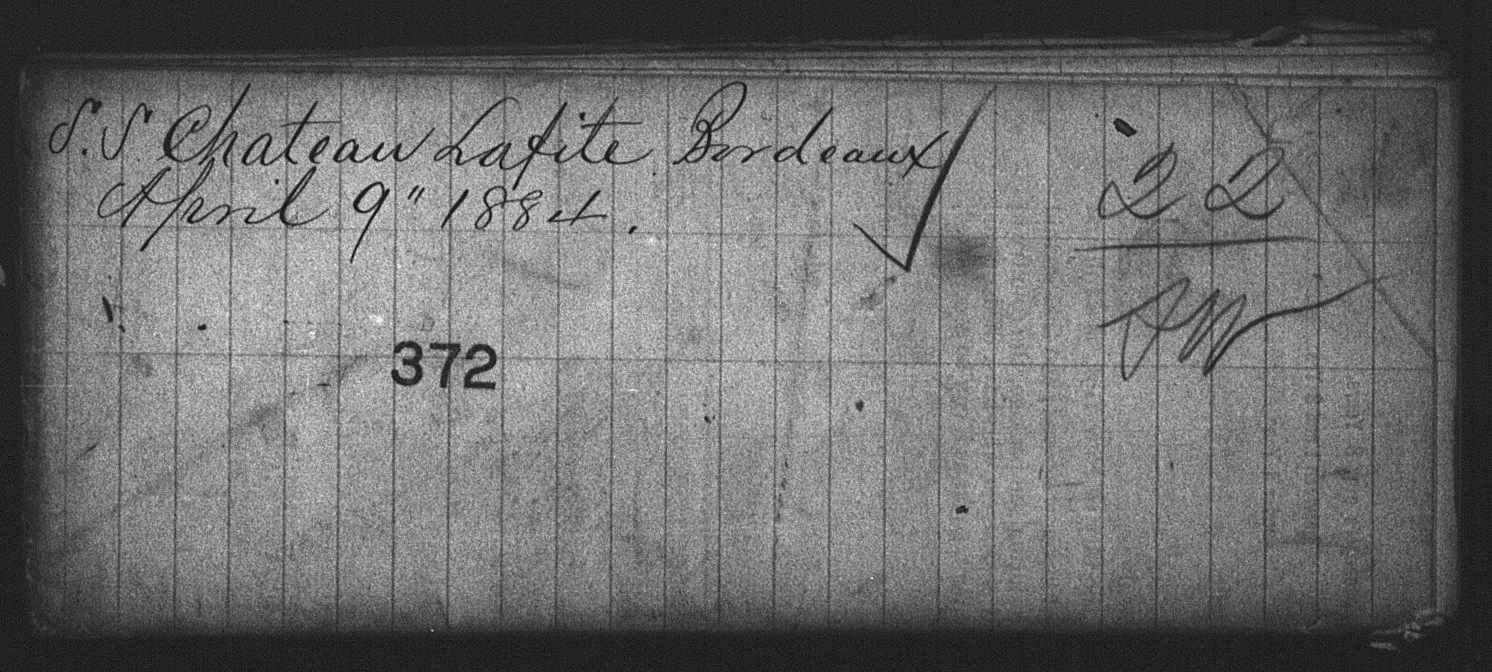 S.S. Chateau Lafite Bordeaux
April 9" 1884.
22
372